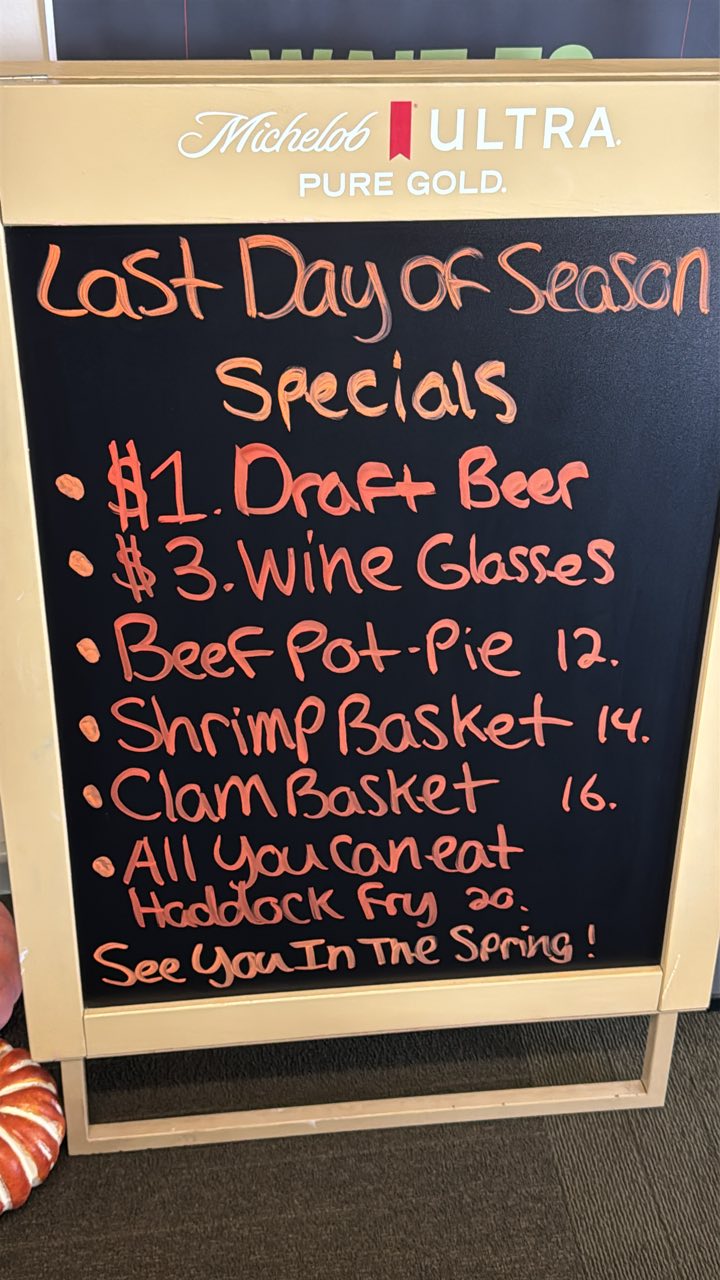 Michelob ULTRA
PURE GOLD.
Last Day of Season
Specials
• $1. Draft Beer
• $3. Wine Glasses
• Beef Pot-Pie 12.
• Shrimp Basket 14.
• Clam Basket 16.
• All You Can eat
Haddock Fry 20.
See You In The Spring!